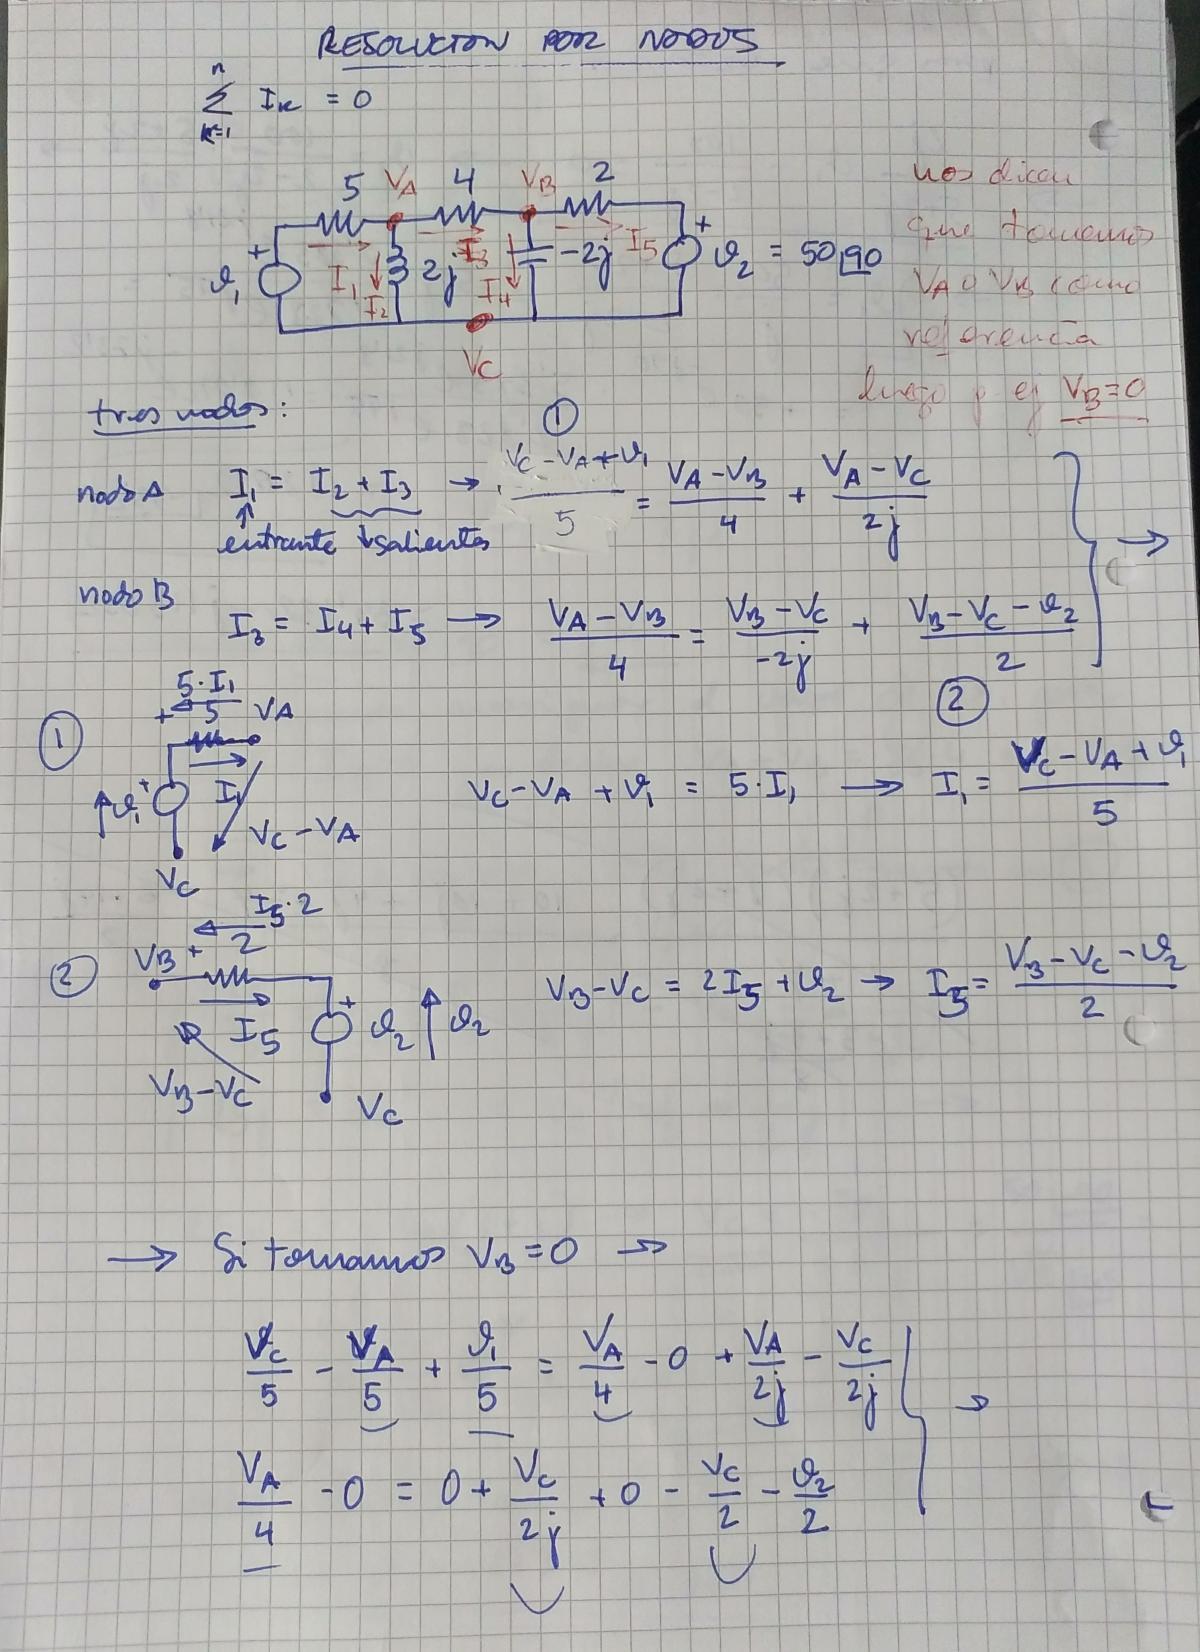 RESOLUCION POR NODOS
n
∑ Iₖ = 0
k=1
5 VA 4 VB 2
+ ϑ₁ I₁ I₂ 2j I₃ I₄ -2j I₅ + ϑ₂ = 50∠90
VC
nos dicen
que tomemos
VA o VB como
referencia
luego p ej VB=0
tres nodos:
①
nodo A I₁ = I₂ + I₃ → (VC - VA + ϑ₁)/5 = (VA - VB)/4 + (VA - VC)/2j
↑ entrante ↓ salientes
nodo B
I₃ = I₄ + I₅ → (VA - VB)/4 = (VB - VC)/-2j + (VB - VC - ϑ₂)/2
②
① 5·I₁
+ 5 VA
ϑ₁ + I₁ VC - VA
VC
VC - VA + ϑ₁ = 5·I₁ → I₁ = (VC - VA + ϑ₁)/5
② I₅·2
VB + 2
I₅ + ϑ₂ ϑ₂
VB - VC VC
VB - VC = 2I₅ + ϑ₂ → I₅ = (VB - VC - ϑ₂)/2
→ Si tomamos VB = 0 →
VC/5 - VA/5 + ϑ₁/5 = VA/4 - 0 + VA/2j - VC/2j →
VA/4 - 0 = 0 + VC/2j + 0 - VC/2 - ϑ₂/2